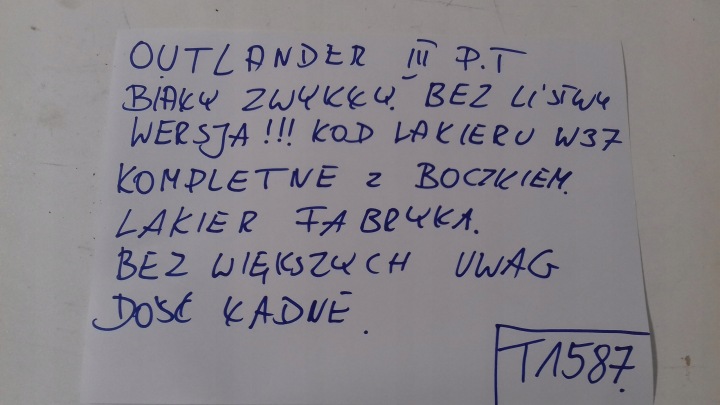 OUTLANDER III P.T
BIAŁY ZWYKŁY. BEZ LISTWY
WERSJA!!! KOD LAKIERU W37
KOMPLETNE Z BOCZKIEM.
LAKIER FABRYKA.
BEZ WIĘKSZYCH UWAG
DOŚĆ ŁADNE.
T1587.